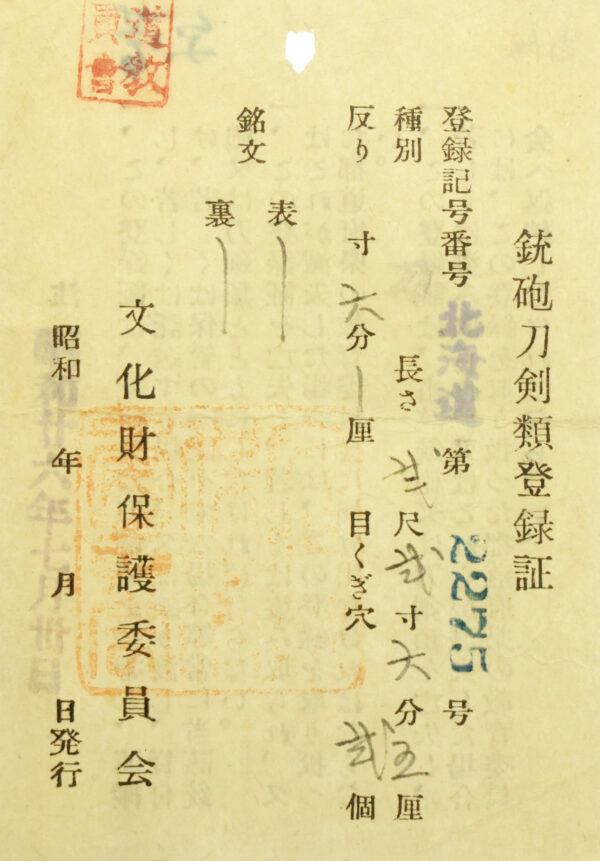 銃砲刀剣類登録証
登録記号番号 北海道 第 2275 号
種別 長さ 弐尺弐寸六分五厘
反り 寸六分一厘 目くぎ穴 弐個
銘文
表
裏
文化財保護委員会
昭和廿六年七月卅日発行
道教
員書